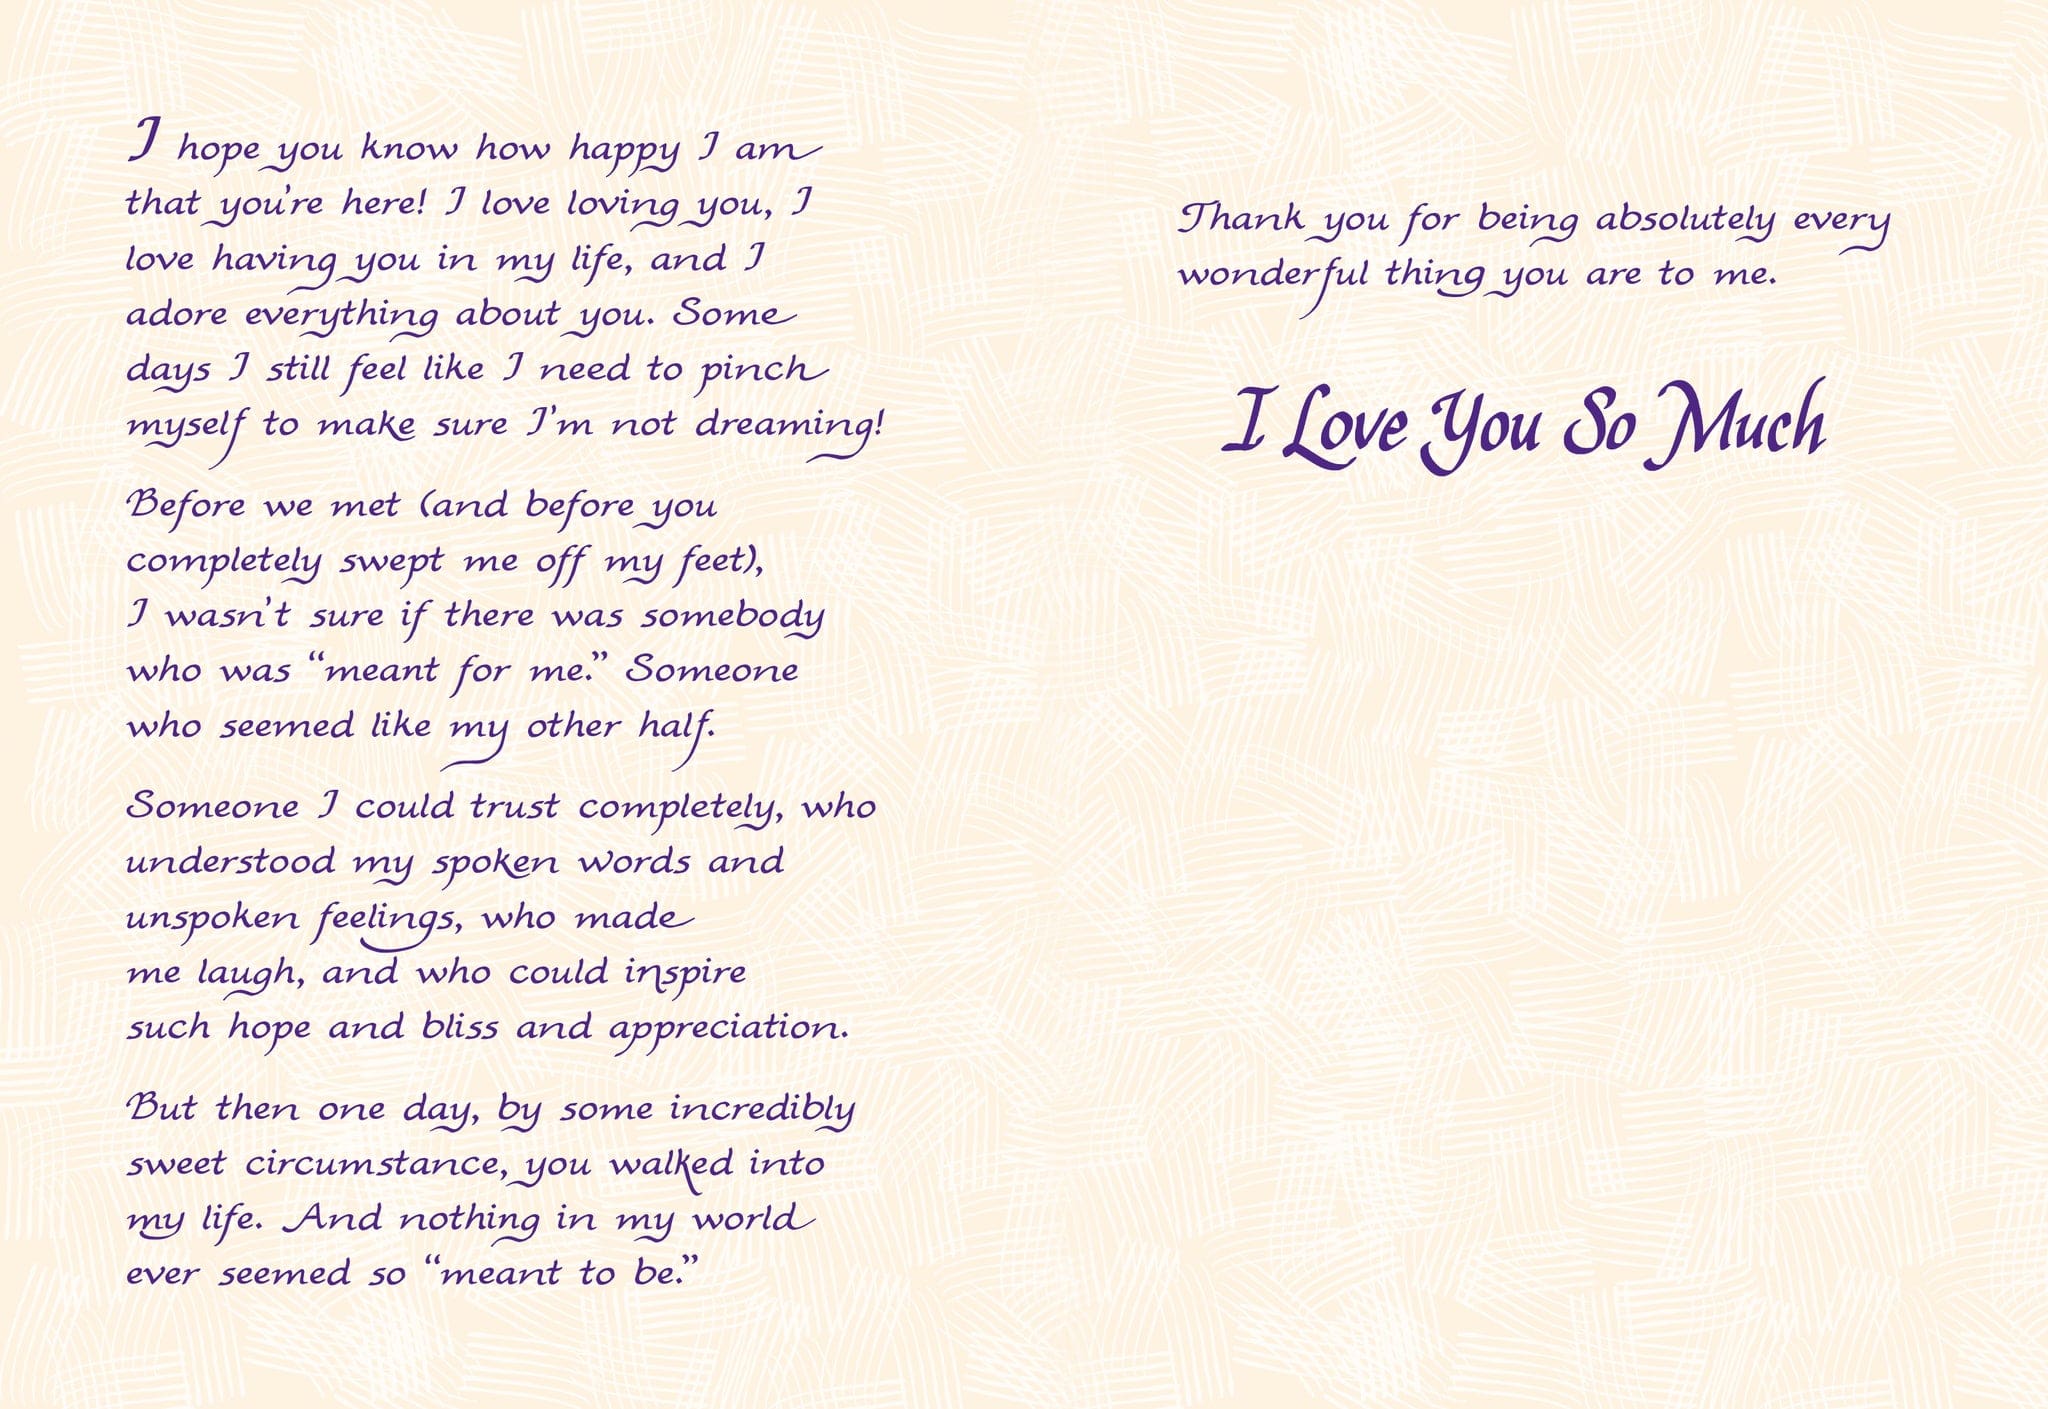 I hope you know how happy I am
that you're here! I love loving you, I
love having you in my life, and I
adore everything about you. Some
days I still feel like I need to pinch
myself to make sure I'm not dreaming!
Before we met (and before you
completely swept me off my feet),
I wasn't sure if there was somebody
who was “meant for me.” Someone
who seemed like my other half.
Someone I could trust completely, who
understood my spoken words and
unspoken feelings, who made
me laugh, and who could inspire
such hope and bliss and appreciation.
But then one day, by some incredibly
sweet circumstance, you walked into
my life. And nothing in my world
ever seemed so “meant to be.”
Thank you for being absolutely every
wonderful thing you are to me.
I Love You So Much